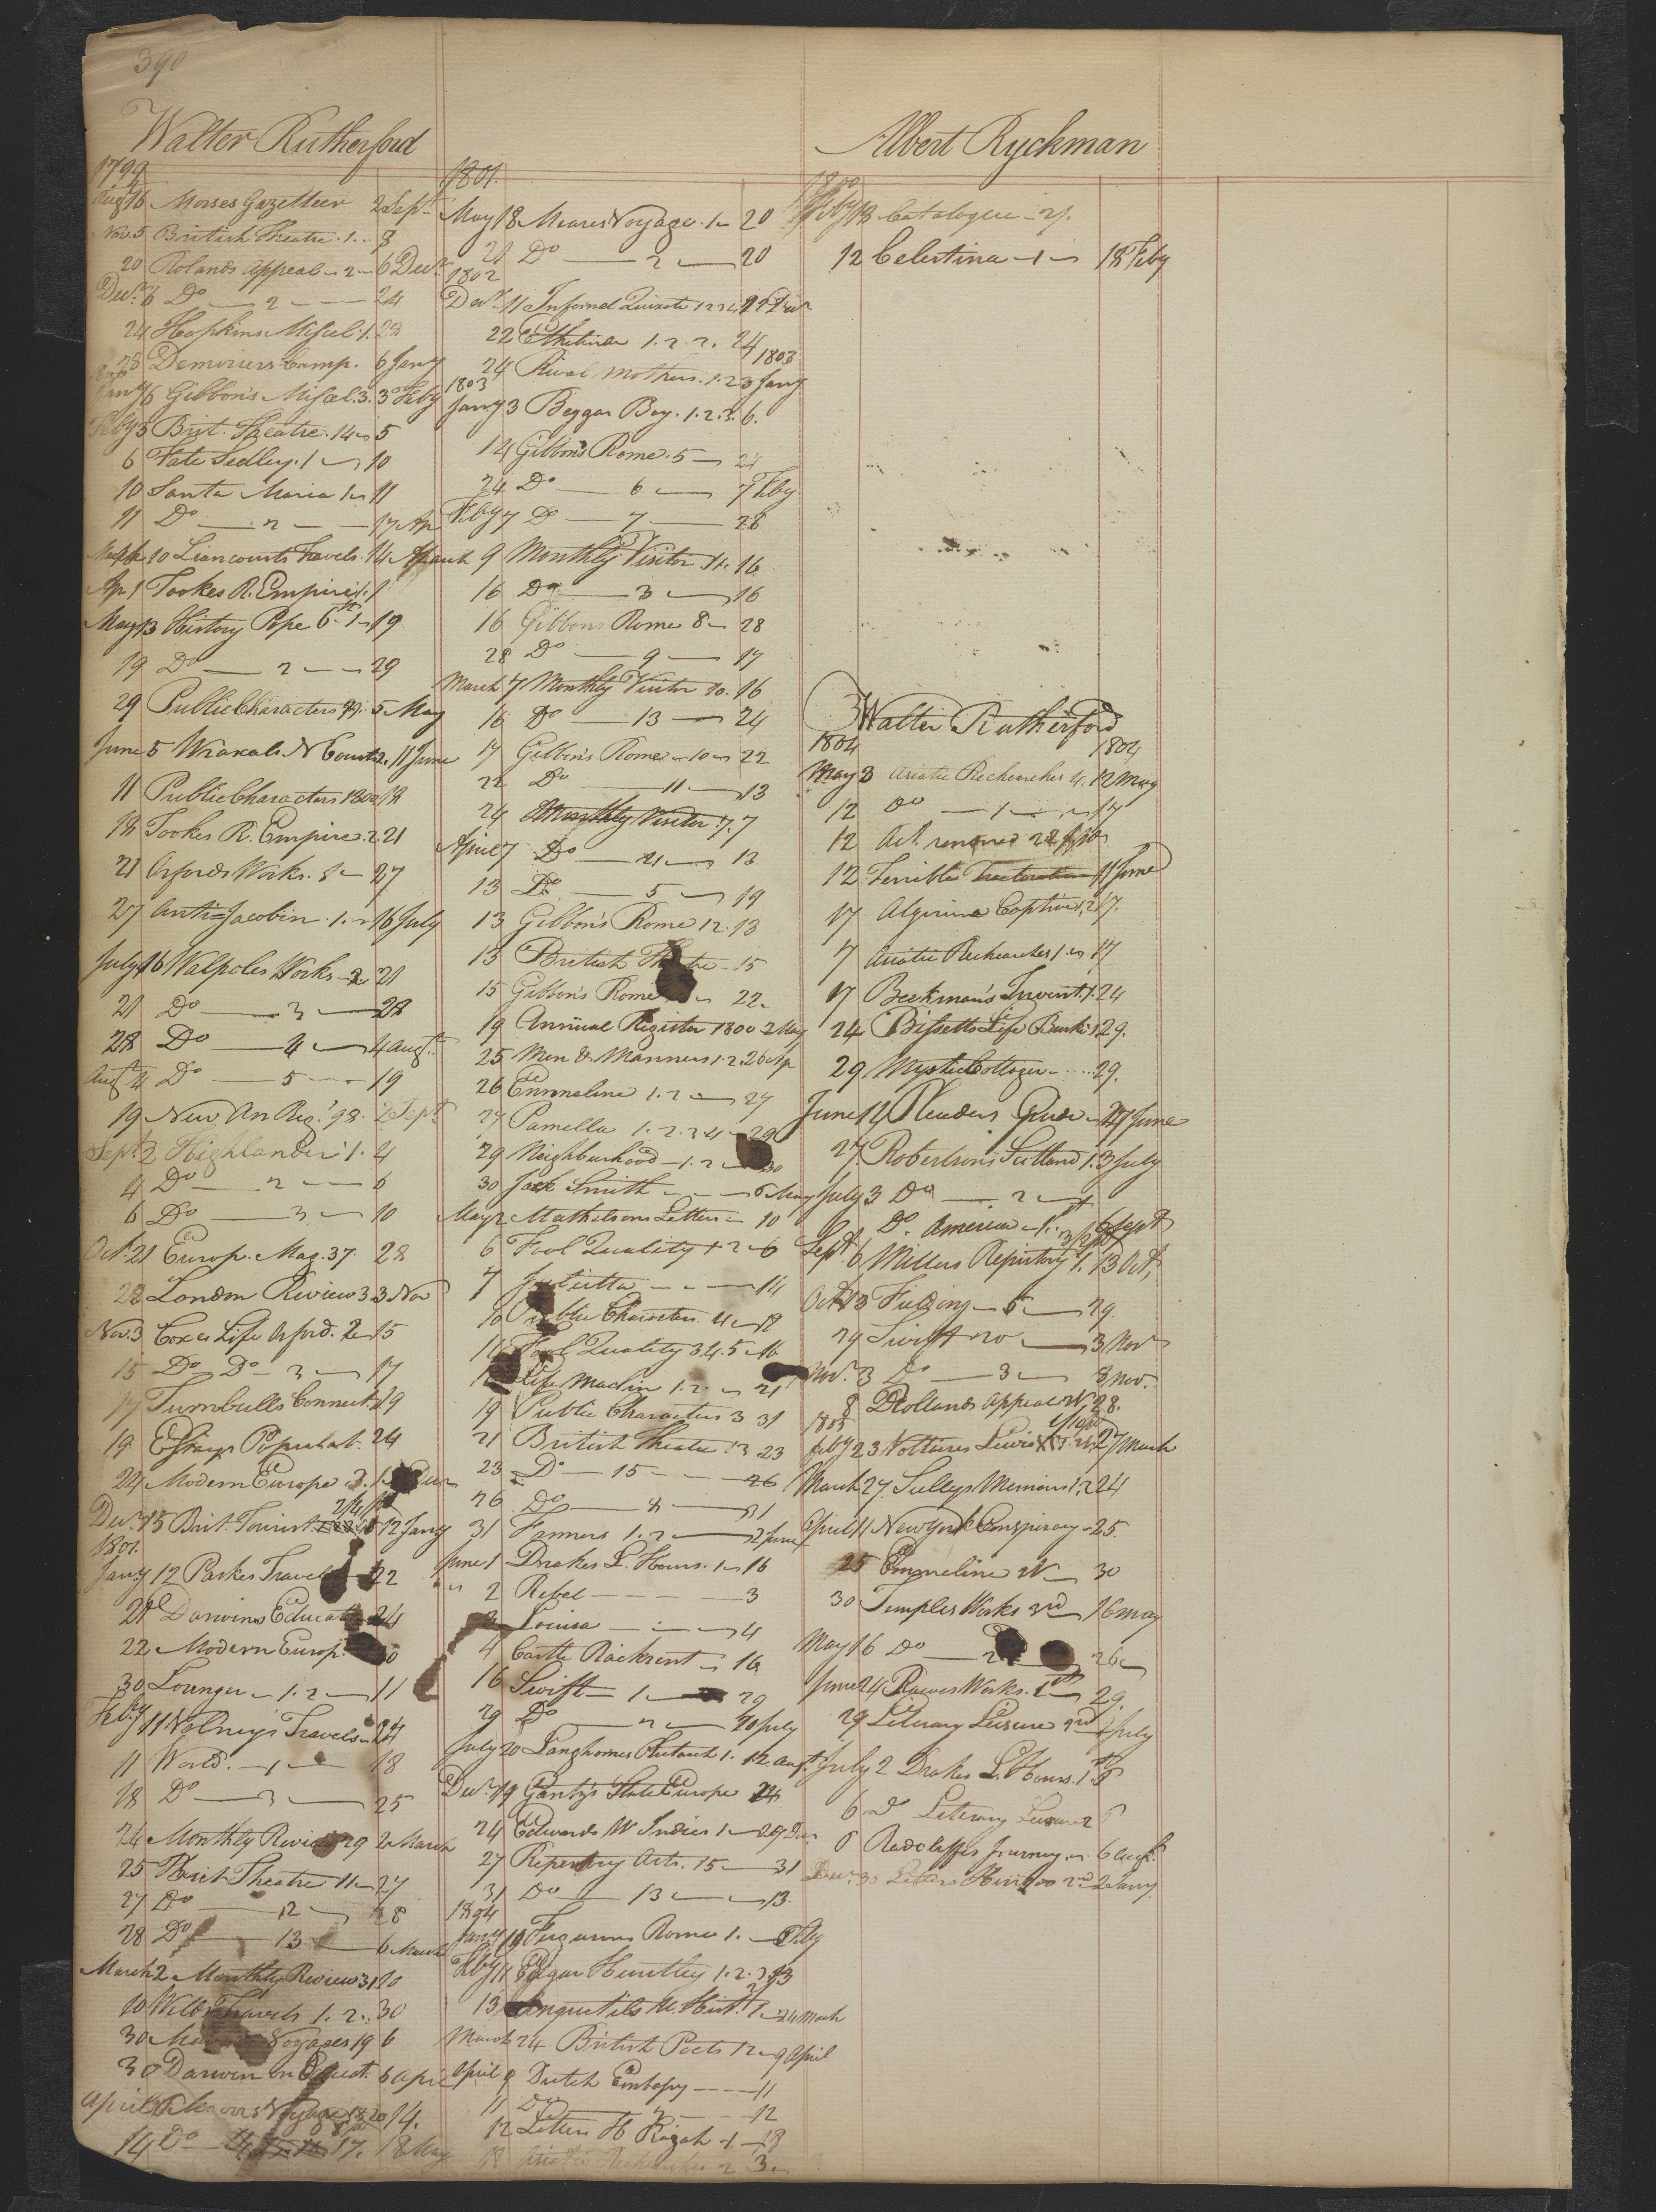 390
Walter Rutherford
1799
Augt 16 Morses Gazetteer 2 Sept
Nov. 5 British Theatre . 1 .. 8
20 Rolands Appeal - 2 - 6 Decr
Decr 6 Do — 2 — 24
24 Hopkins Miscel. 1. 28
28 Demoriers Camp. 6 Jany
1800
Jany 6 Gibbon's Miscel. 3. 3 Feby
Feby 3 Brit. Theatre . 14 5
6 Fate Sedley . 1 — 10
10 Santa Maria 1 11
11 Do — 2 — 17
March 10 Liancourts Travels . 1
Ap 1 Tookes R. Empire 1. 1
May 13 History Pope 6th 1 - 19
19 Do — 2 — 29
29 Public Characters 99. 5 May
June 5 Wraxals N Court 2. 11 June
11 Public Characters 1800 18
18 Tookes R. Empire . 2 21
21 Orfords Works . 27
27 Anti=Jacobin . 1. 16 July
July 16 Walpoles Works - 2 21
21 Do — 3 — 28
28 Do — 4 — 4 Augt
Augt 4 Do — 5 — 19
19 New An Reg. '98. 2 Sept
Sept 2 Highlander 1. 4
4 Do — 2 — 6
6 Do — 3 — 10
Oct. 21 Europ. Mag. 37. 28
28 London Review 3 3 Nov
Nov. 3 Coxes Life Orford. 2 15
15 Do Do — 3 — 17
17 Trumbulls Connect. 19
19 Essays Populat. 24
24 Modern Europe
Decr 15 Brit. Tourist 12 Jany
1801.
Jany 12 Parkes Travels 22
22 Darwins Educat 24
22 Modern Europ.
30 Lounger - 1. 2 — 11
Feby 11 Volney's Travels - 24
11 World. — 1 — 18
18 Do — 3 — 25
24 Monthly Review 29 2 March
25 Brit Theatre 11 - 27
27 Do — 12 — 28
28 Do — 13 — 6 March
March 2 Monthly Review 31 10
10 Welds Travels 1. 2. 30
30 Voyages 19 6
30 Darwin on Educt. 6 Apr
April Voyage 18 20 14.
14 Do 17. 18 May
1801.
May 18 Meares Voyage . 1 — 20
20 Do — 2 — 20
1802
Decr 11 Infernal Quixote 1 2 3 4 22 Decr
22 Ethelinde 1. 2. 2. 24
24 Rival Mothers. 1. 2 3 Jany 1803
1803
Jany 3 Beggar Boy. 1. 2. 3. 6.
14 Gibbon's Rome. 5 — 24
24 Do — 6 — 7 Feby
Feby 7 Do — 7 — 28
March 9 Monthly Visitor 11. 16
16 Do — 3 — 16
16 Gibbons Rome 8 — 28
28 Do — 9 — 17
March 7 Monthly Visitor 10. 16
16 Do — 13 — 24
17 Gibbon's Rome - 10 - 22
22 Do — 11 — 13
24 Monthly Visitor . 7. 7
April 7 Do — 21 — 13
13 Do — 5 — 19
13 Gibbon's Rome 12. 13
13 British Theatre - 15
15 Gibbon's Rome 22.
19 Annual Register 1800 2 May
25 Men & Manners 1. 2. 26 Ap
26 Emmeline 1. 2 — 27
27 Pamella 1. 2. 3 4 - 29
29 Neighburhood — 1. 2 — 30
30 Jack Smith — 6 May
May 2 Mathelsons Letters — 10
6 Fool Quality 1 2 - 6
7 Julietta — 14
10 Public Characters 4 — 12
16 Fool Quality 3 4. 5 - 16
Life Maclin 1. 2. — 21
19 Public Characters 3 31
21 British Theatre 13 23
23 Do — 15 — 26
26 Do — 8 — 31
31 Farmers 1. 2 — 2 June
June 1 Drakes L. Hours. 1 - 16
2 Rebel — 3
3 Louisa — 4
4 Castle Rackrent — 16
16 Swift — 1 — 29
29 Do — 2 — 20 July
July 20 Langhornes Plutarch 1. 12 Augt.
Decr 19 Gentz's State Europe 24
24 Edwards W Indies 1 — 27 Decr
27 Repertory Arts. 15 — 31
31 Do — 13 — 13
1804
Jany 19 Fergusons Rome 1. Feby
Feby 11 Edgar Huntley 1. 2. 3 13
13 Anquetils U. Hist. 1 — 24 March
March 24 British Poets 12 - 9 April
April 9 Dutch Embassy — 11
11 Do — 2 — 12
12 Letters H Rajah - 1 - 18
18 Asiatic Recherches 2 3.
Albert Ryckman
1800
Feby 13 Catalogue - 2/.
12 Celestina - 1 - 18 Feby
Walter Rutherford
1804 1804
May 3 Asiatic Recherches 4. 12 May
12 Do — 1 — 17
12 Act. renewed
12 Terrible Tractoration 11 June
17 Algerine Captive 1, 2 17.
7 Asiatic Recherches 1 17
17 Beckman's Invent. 1. 24
24 Bissetts Life Burke 1 29.
29 Mystic Cottager — 29.
June 12 Pleaders Guide - 27 June
27 Robertson's Scotland 1. 3 July
July 3 Do — 2 — 1
Do. America - 1. 6 Sept
Sept 6 Millers Repository 1. 13 Oct.
Oct. 13 Fielding — 5 — 29
29 Swift 20 — 3 Nov
Nov. 3 Do — 3 — 8 Nov.
8 Rollands Appeal 28.
1805
Feby 23 Voltaires Lewis 27 March
March 27 Sullys Memoirs 1, 2 24
April 11 New York Conspiracy - 25.
25 Emmeline — 30
30 Temples Works 3rd — 16 May
May 16 Do — 2 — 26
June 24 Rowes Works. 1st — 29.
29 Literary Leisure 2nd July
July 2 Drakes L. Hours. 1st 6
6 Do Literary Leisure 2
6 Radcliffes Journey 6 Augt
Decr 30 Letters 2nd 2 Jany.